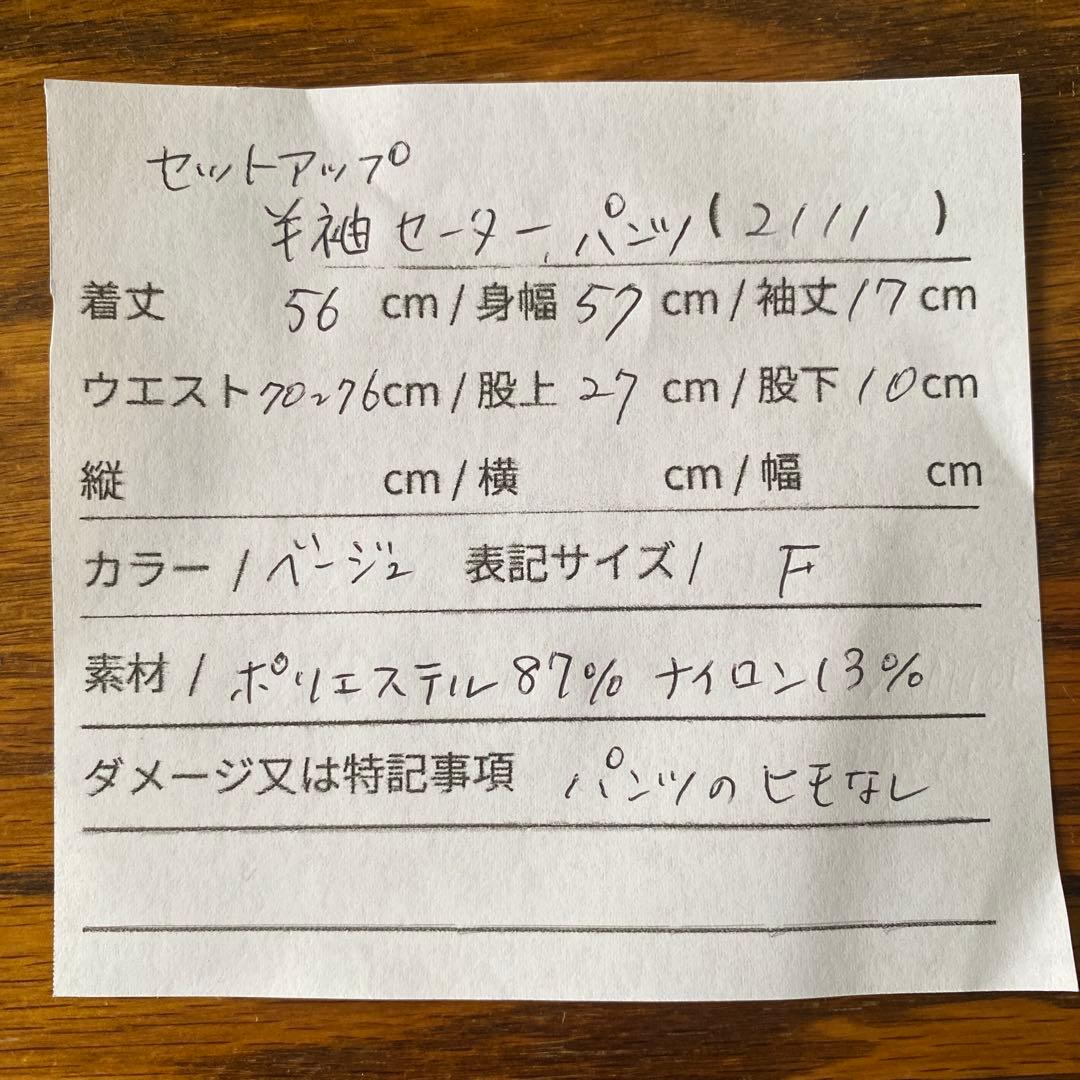 セットアップ
半袖セーター、パンツ(2111 )
着丈 56 cm/身幅 57 cm/袖丈17cm
ウエスト70~76cm/股上 27 cm/股下10cm
縦 cm/横 cm/幅 cm
カラー/ベージュ 表記サイズ/ F
素材/ポリエステル87% ナイロン13%
ダメージ又は特記事項 パンツのヒモなし